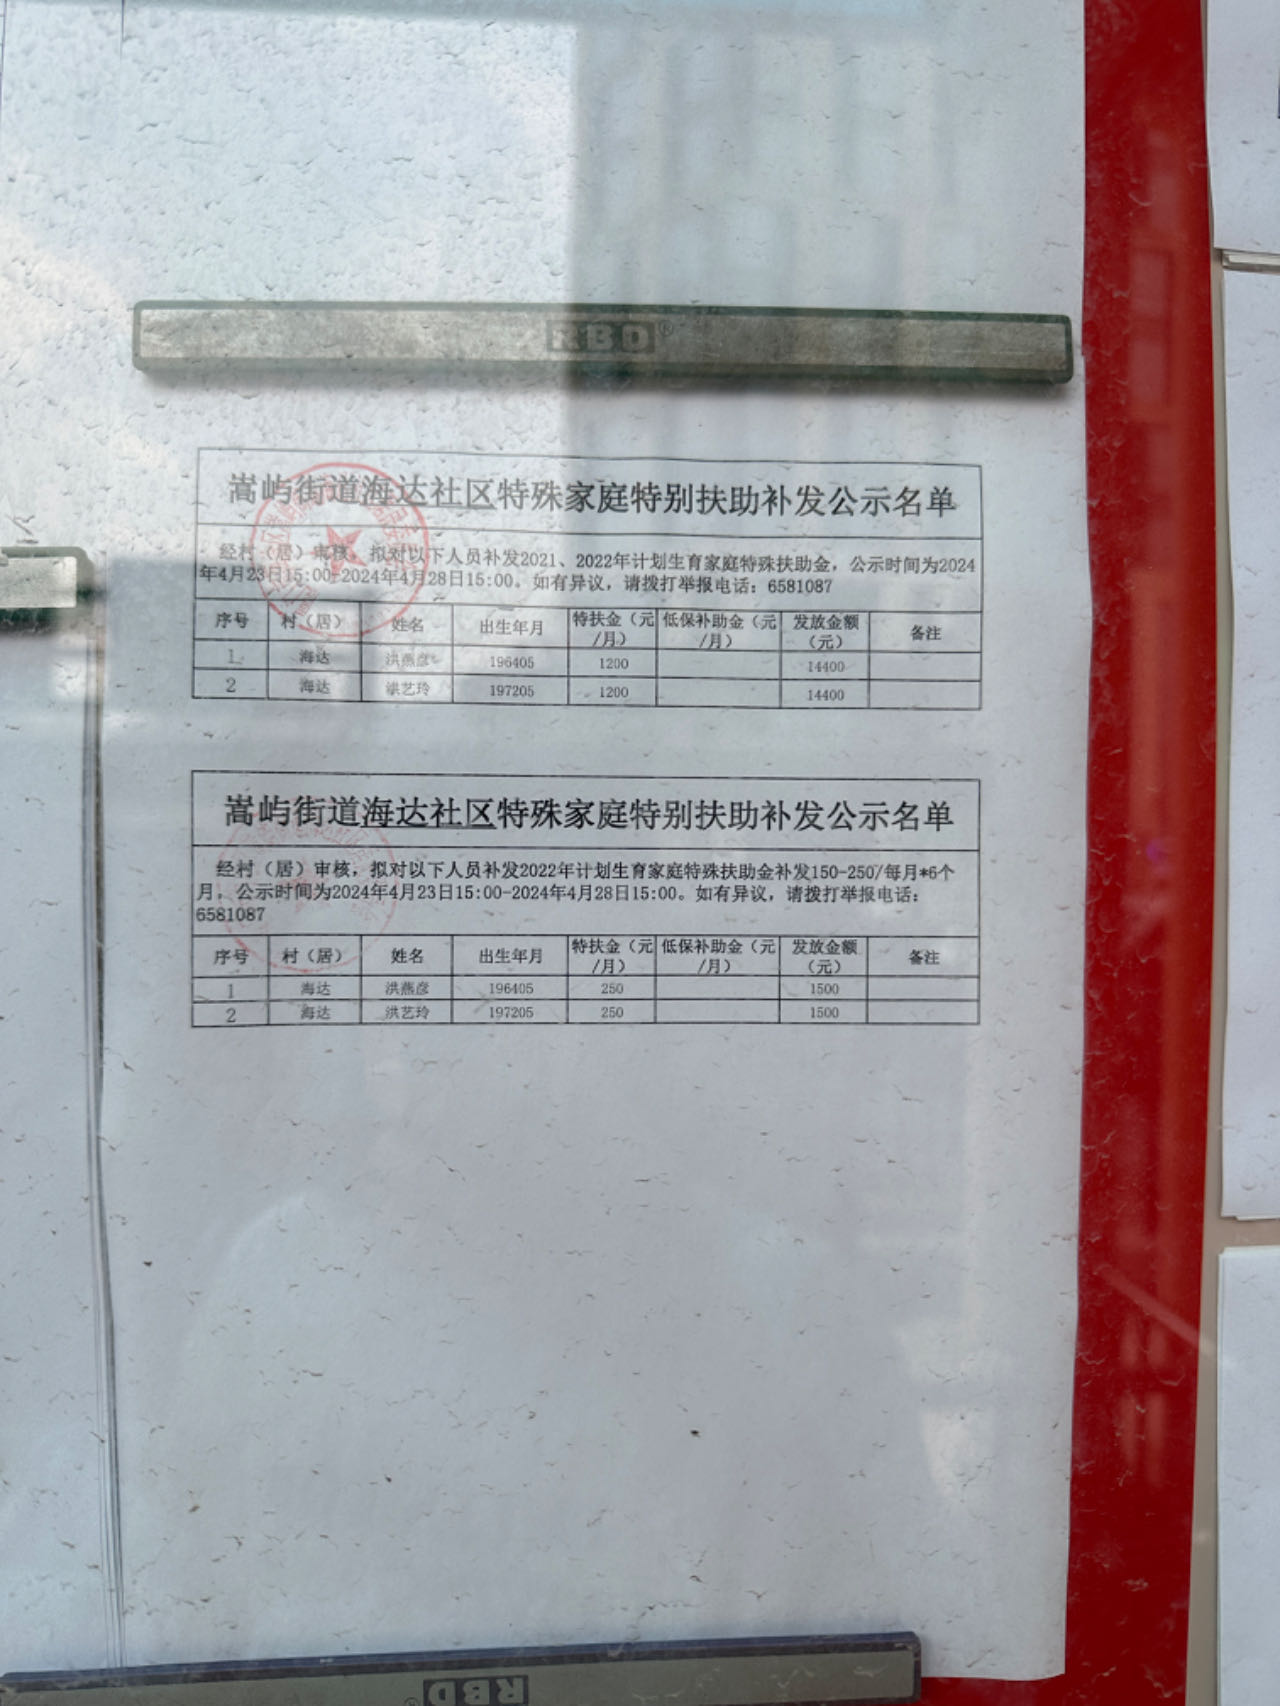 RBD®
嵩屿街道海达社区特殊家庭特别扶助补发公示名单
经村（居）审核，拟对以下人员补发2021、2022年计划生育家庭特殊扶助金，公示时间为2024
年4月23日15:00-2024年4月28日15:00。如有异议，请拨打举报电话：6581087
序号 村（居） 姓名 出生年月 特扶金（元/月） 低保补助金（元/月） 发放金额（元） 备注
1 海达 洪燕彦 196405 1200 14400
2 海达 洪艺玲 197205 1200 14400
嵩屿街道海达社区特殊家庭特别扶助补发公示名单
经村（居）审核，拟对以下人员补发2022年计划生育家庭特殊扶助金补发150-250/每月*6个
月，公示时间为2024年4月23日15:00-2024年4月28日15:00。如有异议，请拨打举报电话：
6581087
序号 村（居） 姓名 出生年月 特扶金（元/月） 低保补助金（元/月） 发放金额（元） 备注
1 海达 洪燕彦 196405 250 1500
2 海达 洪艺玲 197205 250 1500
RBD®